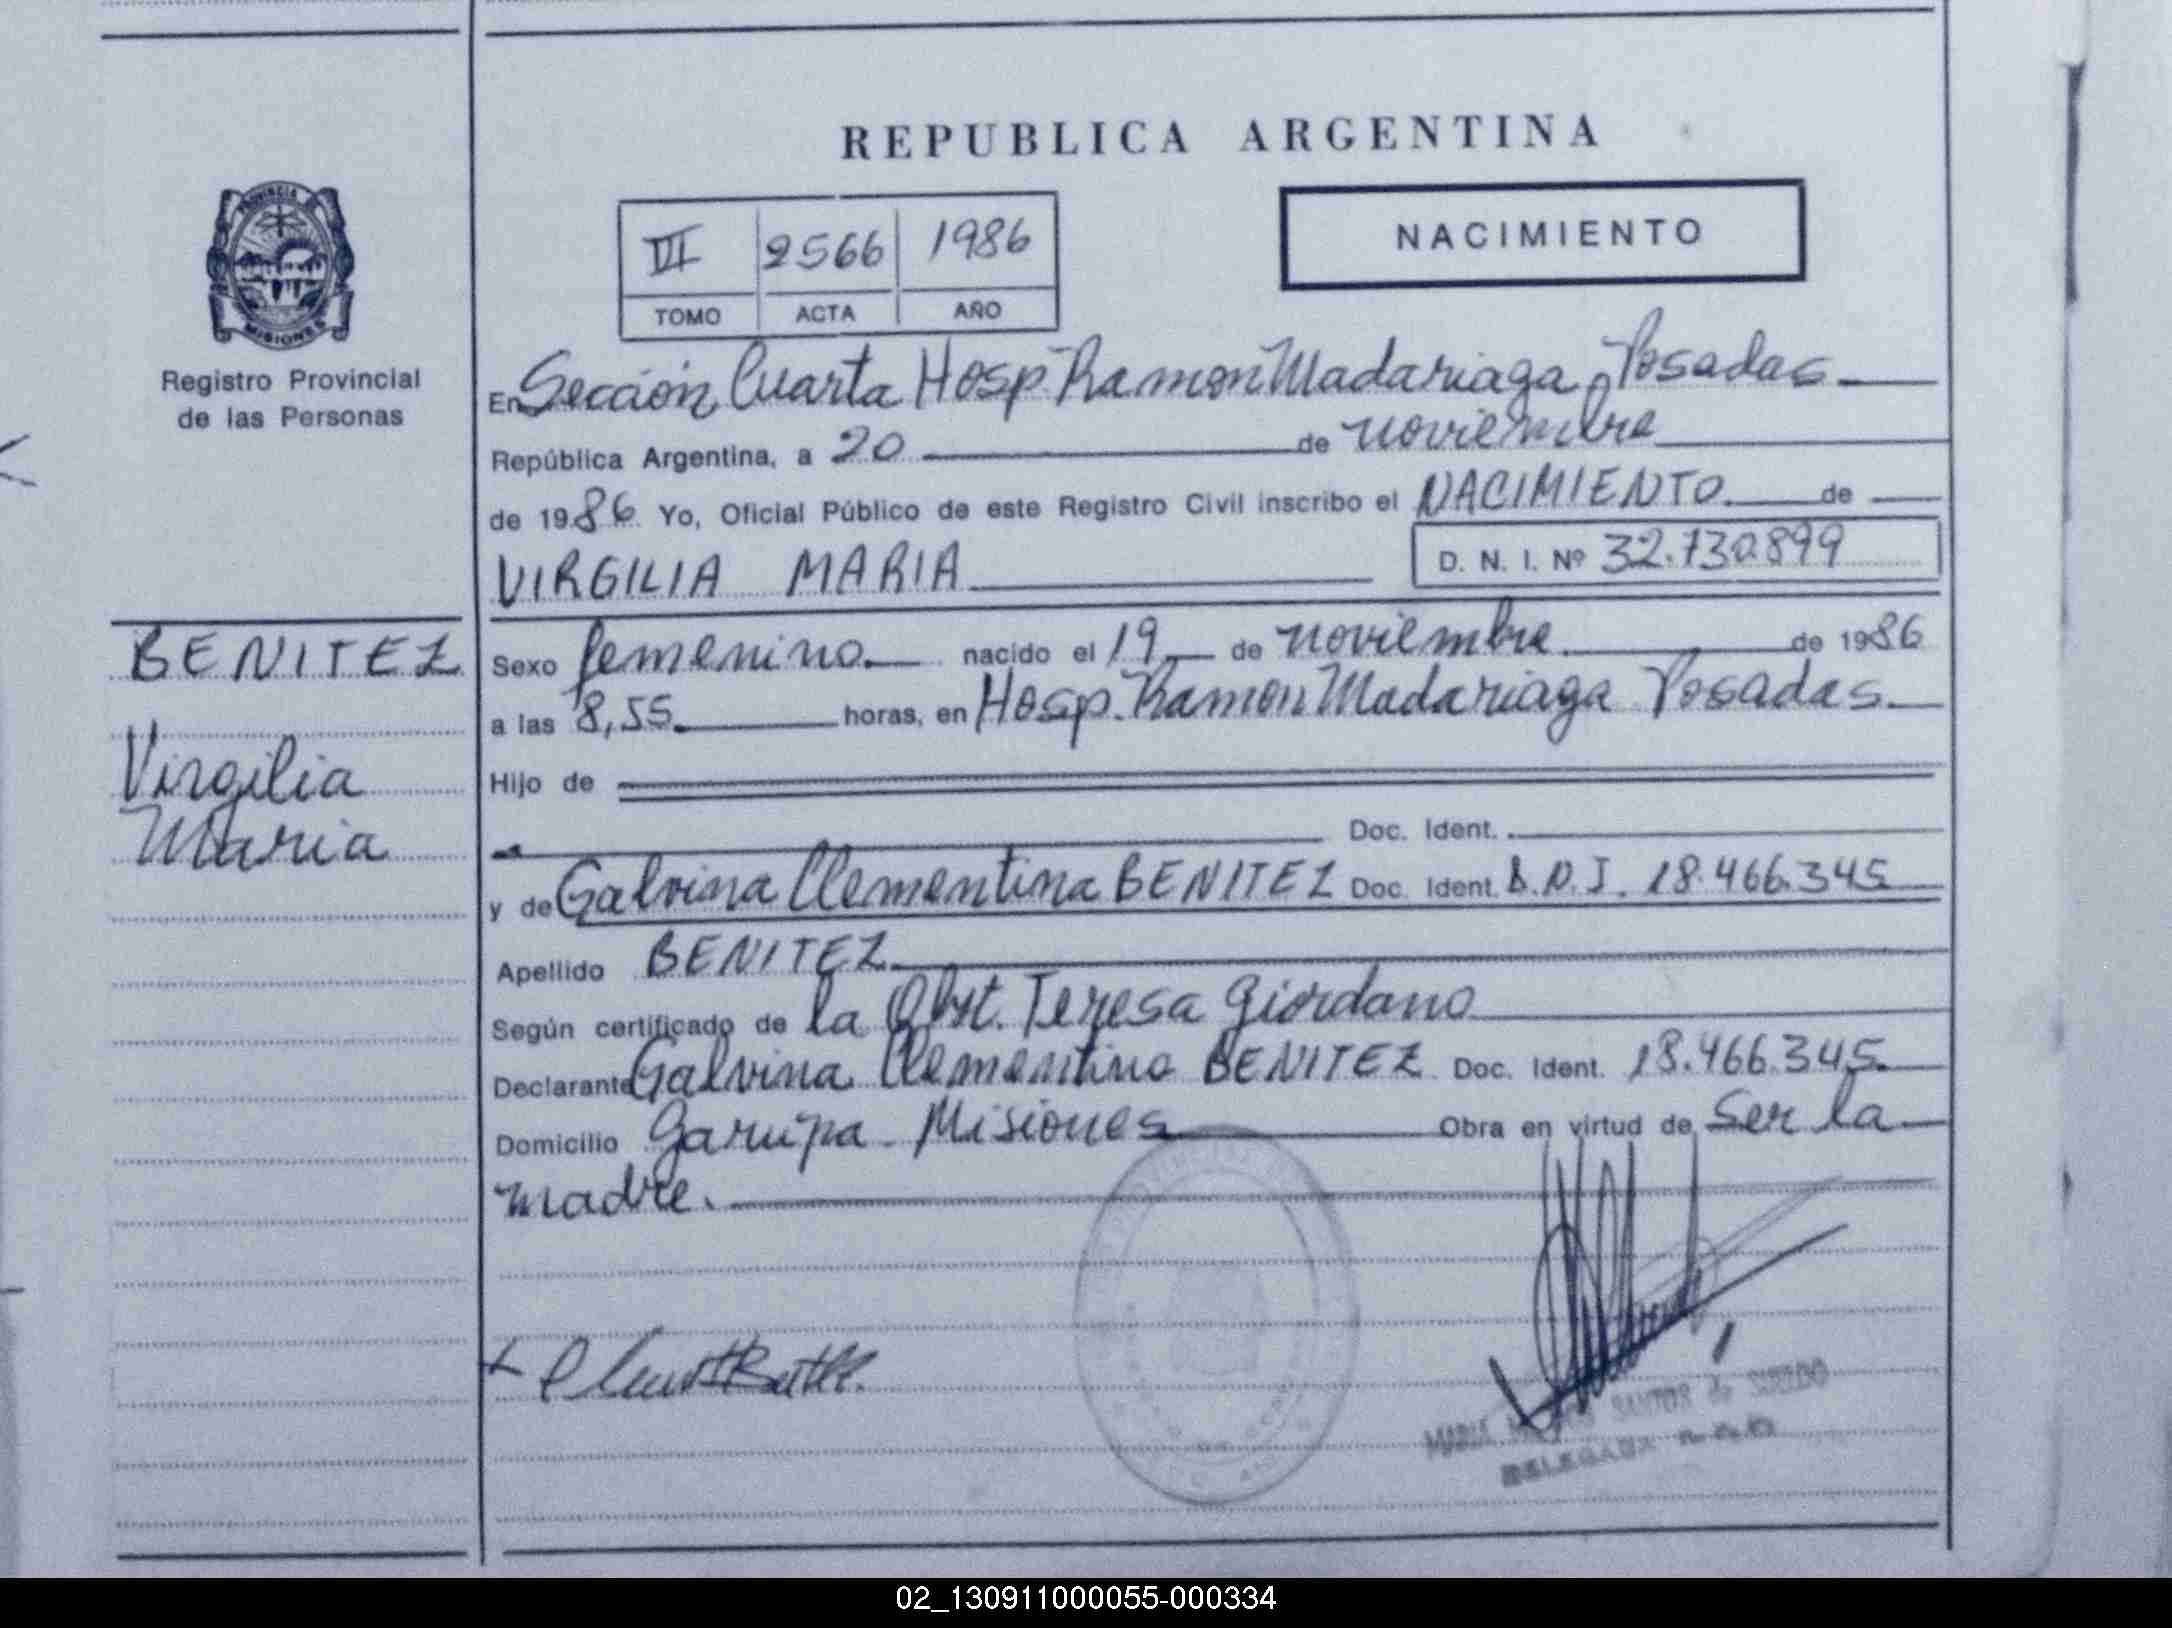 REPUBLICA ARGENTINA
PROVINCIA DE
MISIONES
Registro Provincial
de las Personas
VI 2566 1986
TOMO ACTA AÑO
NACIMIENTO
En Sección Cuarta Hosp Ramon Madariaga Posadas
República Argentina, a 20 de noviembre
de 1986 Yo, Oficial Público de este Registro Civil inscribo el NACIMIENTO de
VIRGILIA MARIA D. N. I. Nº 32.730.899
BENITEZ
Virgilia
Maria
Sexo femenino nacido el 19 de noviembre de 1986
a las 8,55 horas, en Hosp. Ramon Madariaga Posadas
Hijo de
Doc. Ident.
y de Galvina Clementina BENITEZ Doc. Ident. D.N.I. 18.466.345
Apellido BENITEZ
Según certificado de la Obst. Teresa Giordano
Declarante Galvina Clementina BENITEZ Doc. Ident. 18.466.345
Domicilio Garupa Misiones Obra en virtud de Ser la
madre.
MARIA SANTOS de
DELEGADA
02_130911000055-000334